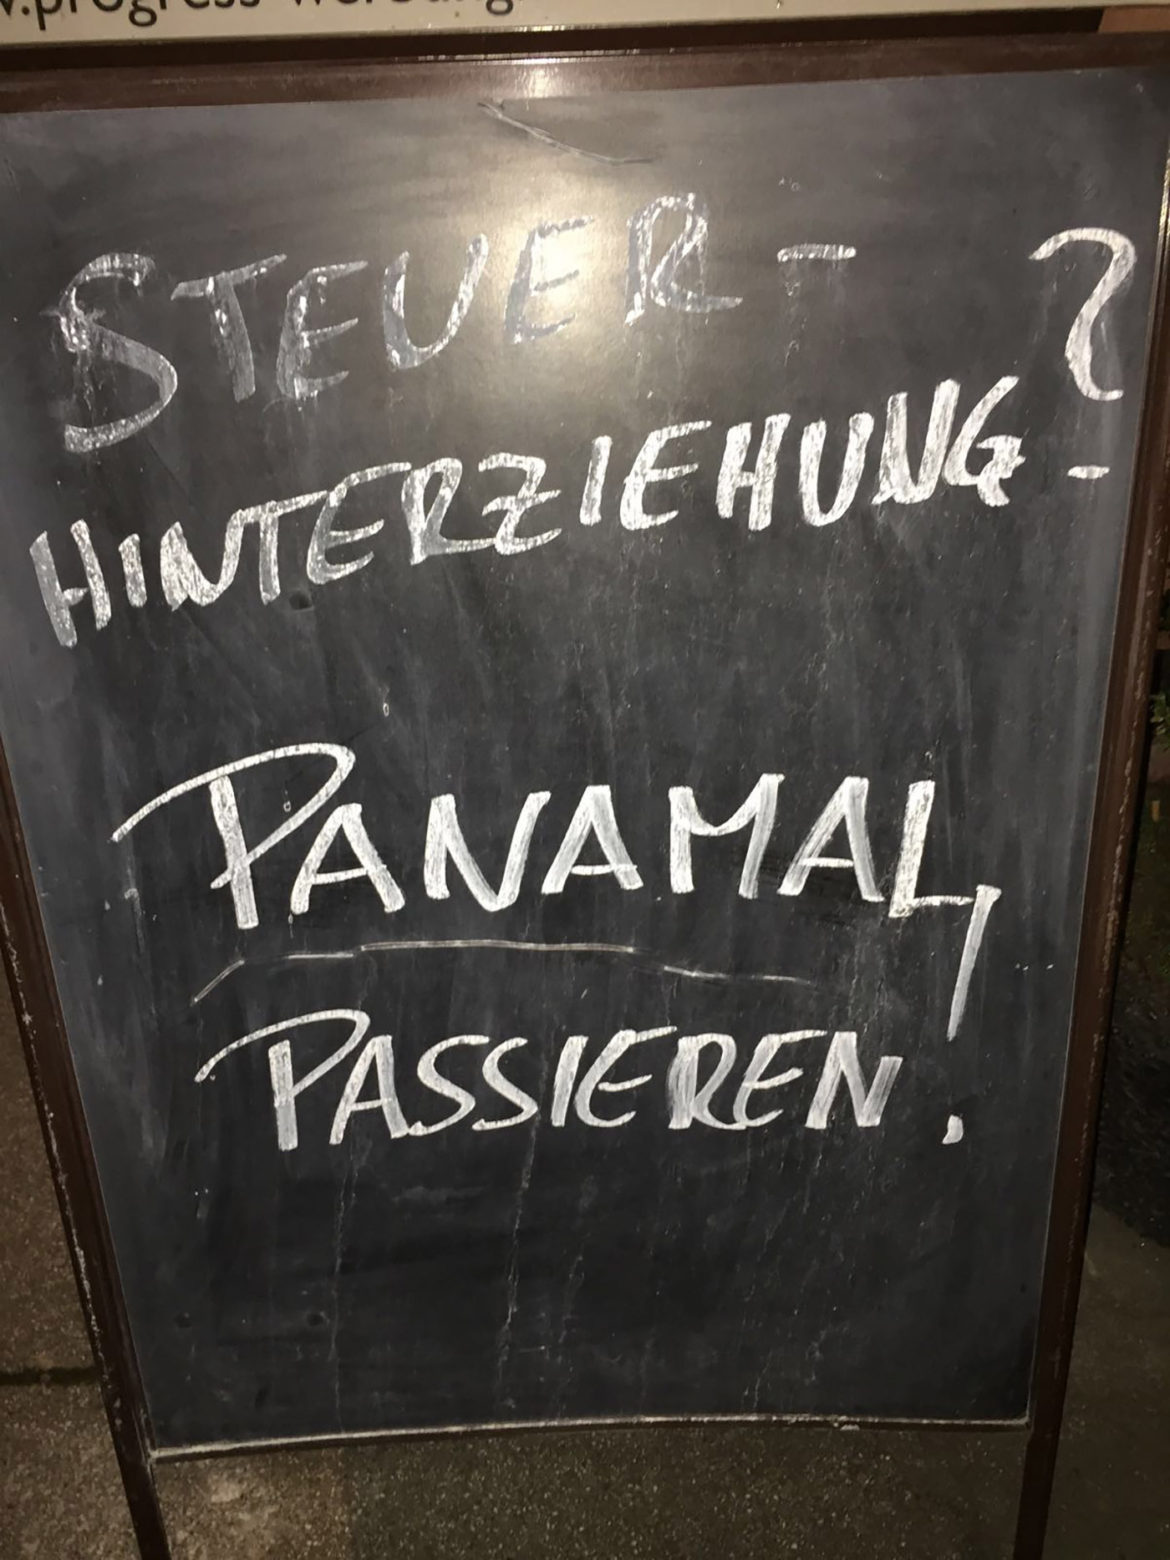 w.progress-werbung.
STEUER-
HINTERZIEHUNG?
PANAMAL
PASSIEREN!